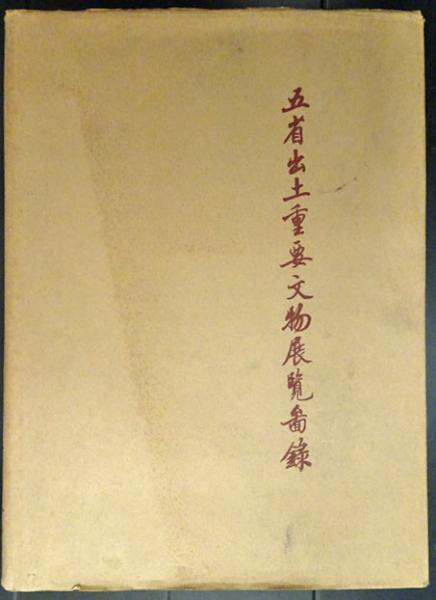 五省出土重要文物展覽啚錄